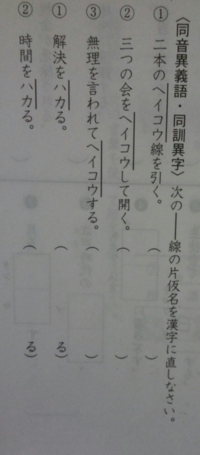 〈同音異義語・同訓異字〉次の――線の片仮名を漢字に直しなさい。
① 二本のヘイコウ線を引く。（　　）
② 三つの会をヘイコウして開く。（　　）
③ 無理を言われてヘイコウする。（　　）
① 解決をハカる。（　　る）
② 時間をハカる。（　　る）